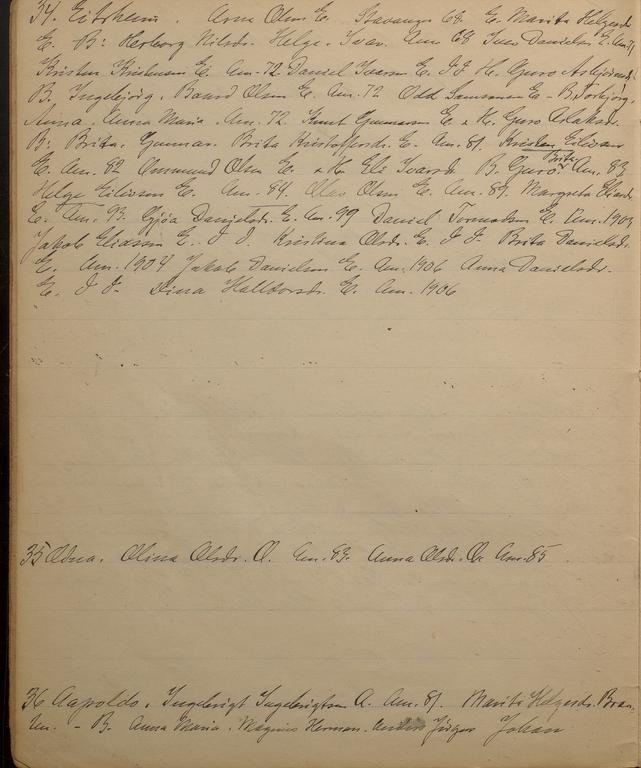 34. Eitrheim. Arne Olsen E. Stavanger 68. E. Marita Helgesdr.
E. B: Herborg Nilsdr. Helge. Ivar. Am 68 Iver Danielsen E. Am. 71
Kristen Kristensen E. Am. 72 Daniel Ivarsen E. I I H. Guro Asbjörnsd.
B. Ingebjörg. Baard Olsen E. Am. 72 Odd E. - B. Torbjörg.
Anna. Anna Maria. Am. 72. Knut Gunnarsen E. & H. Guro Aslaksdr.
B: Brita. Gunnar. Brita Kristoffersdr. E. Am. 81. Kristen Eilivsen
E. Am. 82 Ommund Olsen E. & H. Eli Ivarsdr. B. Guro. Brita Am. 83
Helge Eilivsen E. Am. 84. Olav Olsen E. Am. 89. Margreta Eliasdr.
E. Am. 93. Gjöa Danielsdr. E. Am. 99 Daniel Tormodsen E. Am. 1903
Jakob Eliassen E. I I. Kristina Olsdr. E. I I. Brita Danielsdr.
E. Am. 1904 Jakob Danielsen E. Am. 1906 Anna Danielsdr.
E. I I. Dina Halldorsdr. E. Am. 1906
35 Odna. Olina Olsdr. O. Am. 83. Anna Olsdr. O. Am. 85
36 Aapoldo. Ingebrigt Ingebrigtsen A. Am. 81. Marita Helgesdr.
Am. - B. Anna Maria. Magnus Herman. Anders Jörgen Johan